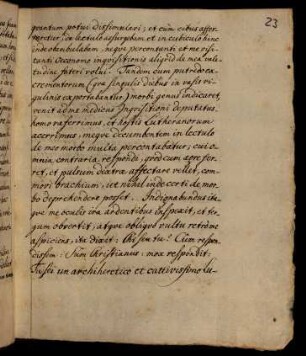 23
grantum potui dissimulavi; et cum cibus affer-
retur in lectulo assurgebam et in cubiculo hinc
inde ambulabam, neque percontanti et me visi-
tanti Oeconomo inquisitionis aliquid de mea vale-
tudine fateri volui. Tandem cum putredo ex-
crementorum (quae singulis diebus in vasis vi-
gilinis exportabantur) morbi genus indicaret,
venit ad me medicus Inquisitioni deputatus,
homo taferrimus, et hostis Lutheranorum
acerrimus, meque decumbentem in lectulo
de meo morbo multa percontabatur; cui o-
mnia, contraria, respondi, quod cum aegre fer-
ret, et pulsum dextrae affectare vellet, com-
movi brachium, ut nihil inde certi de mor-
bo deprehendere posset. Indignabundus ita-
que me oculis ira ardentibus inspexit, et ter-
gum obvertit, atque obliquo vultu retrome
aspiciens, ita dixit: Chi sei tu? Cum respon-
dissem: Sum Christianus: mox respondit:
Tu sei un archiheretico et cattivissimo Lu-